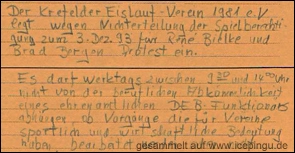 Der Krefelder Eislauf-Verein 1981 e.V
legt wegen Nichterteilung der Spielberechti-
gung zum 3. Dez 93 für Rene Bielke und
Brad Bergen Protest ein.
Es darf werktags zwischen 9 30 und 14 00 Uhr
nicht von der beruflichen Abkömmlichkeit
eines ehrenamtlichen DEB-Funktionärs
abhängen, ob Vorgänge die für Vereine
sportlich und wirtschaftliche Bedeutung
haben, bearbeitet
gesammelt auf www.icepingu.de